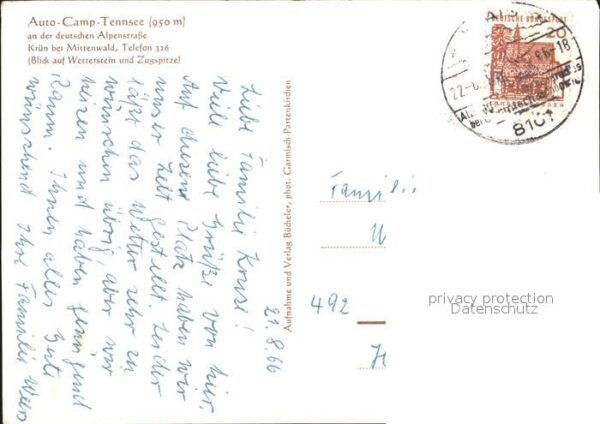 Auto-Camp-Tennsee (950 m)
an der deutschen Alpenstraße
Krün bei Mittenwald, Telefon 326
(Blick auf Wetterstein und Zugspitze)
21.8.66
Liebe Familie Kruse!
Viele liebe Grüße von hier.
Auf diesem Platz haben wir
unser Zelt gestellt. Leider
läßt das Wetter sehr zu
wünschen übrig, aber wir
heizen und haben genügend
Raum. Ihnen alles Gute
wünschend Ihre Familie
Aufnahme und Verlag Bücheler, phot. Garmisch-Partenkirchen
DEUTSCHE BUNDESPOST
20
22.8.66-18
8101
Familie
492
privacy protection
Datenschutz